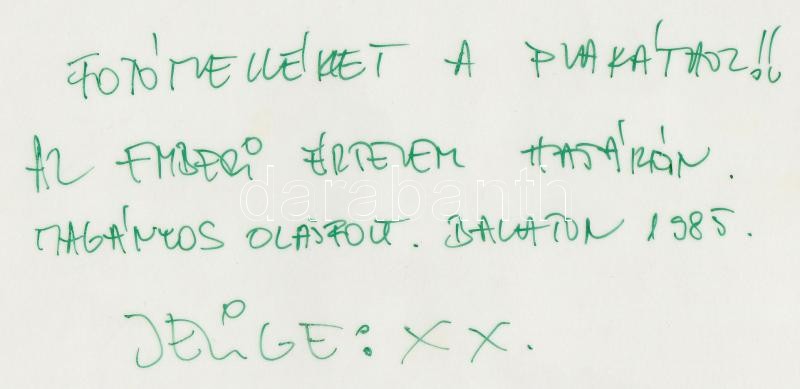 FOTÓMELLÉKLET A PLAKÁTHOZ!!
AZ EMBERI ÉRTELEM HATÁRÁN.
MAGÁNYOS OLAJFOLT. BALATON 1985.
JELIGE: XX.
darabanth